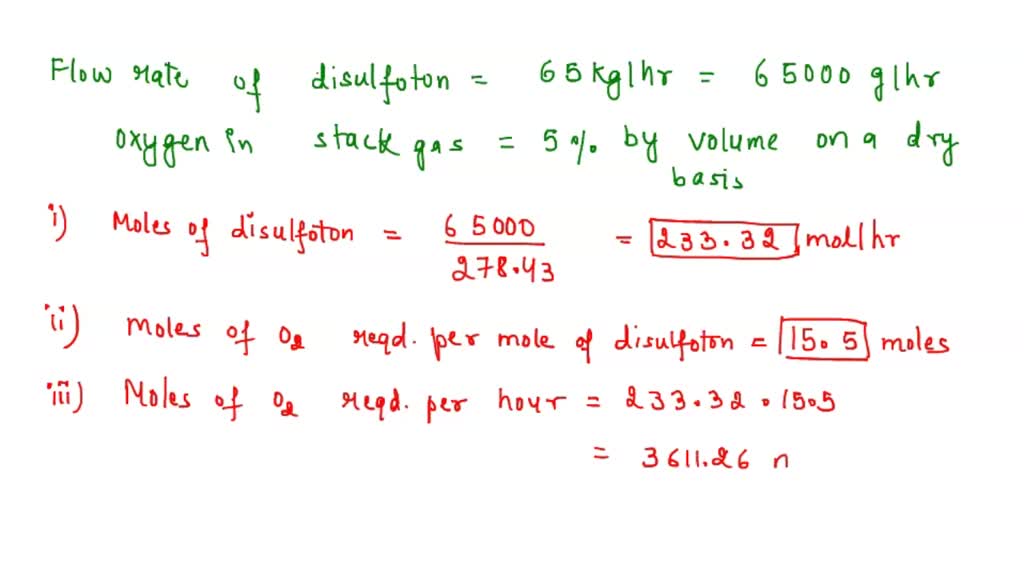 Flow rate of disulfoton = 65 kg/hr = 65000 g/hr
oxygen in stack gas = 5 % by volume on a dry
basis
i) Moles of disulfoton = 65000 / 278.43 = 233.32 mol/hr
ii) Moles of O2 reqd. per mole of disulfoton = 15.5 moles
iii) Moles of O2 reqd. per hour = 233.32 . 15.5
= 3611.26 n